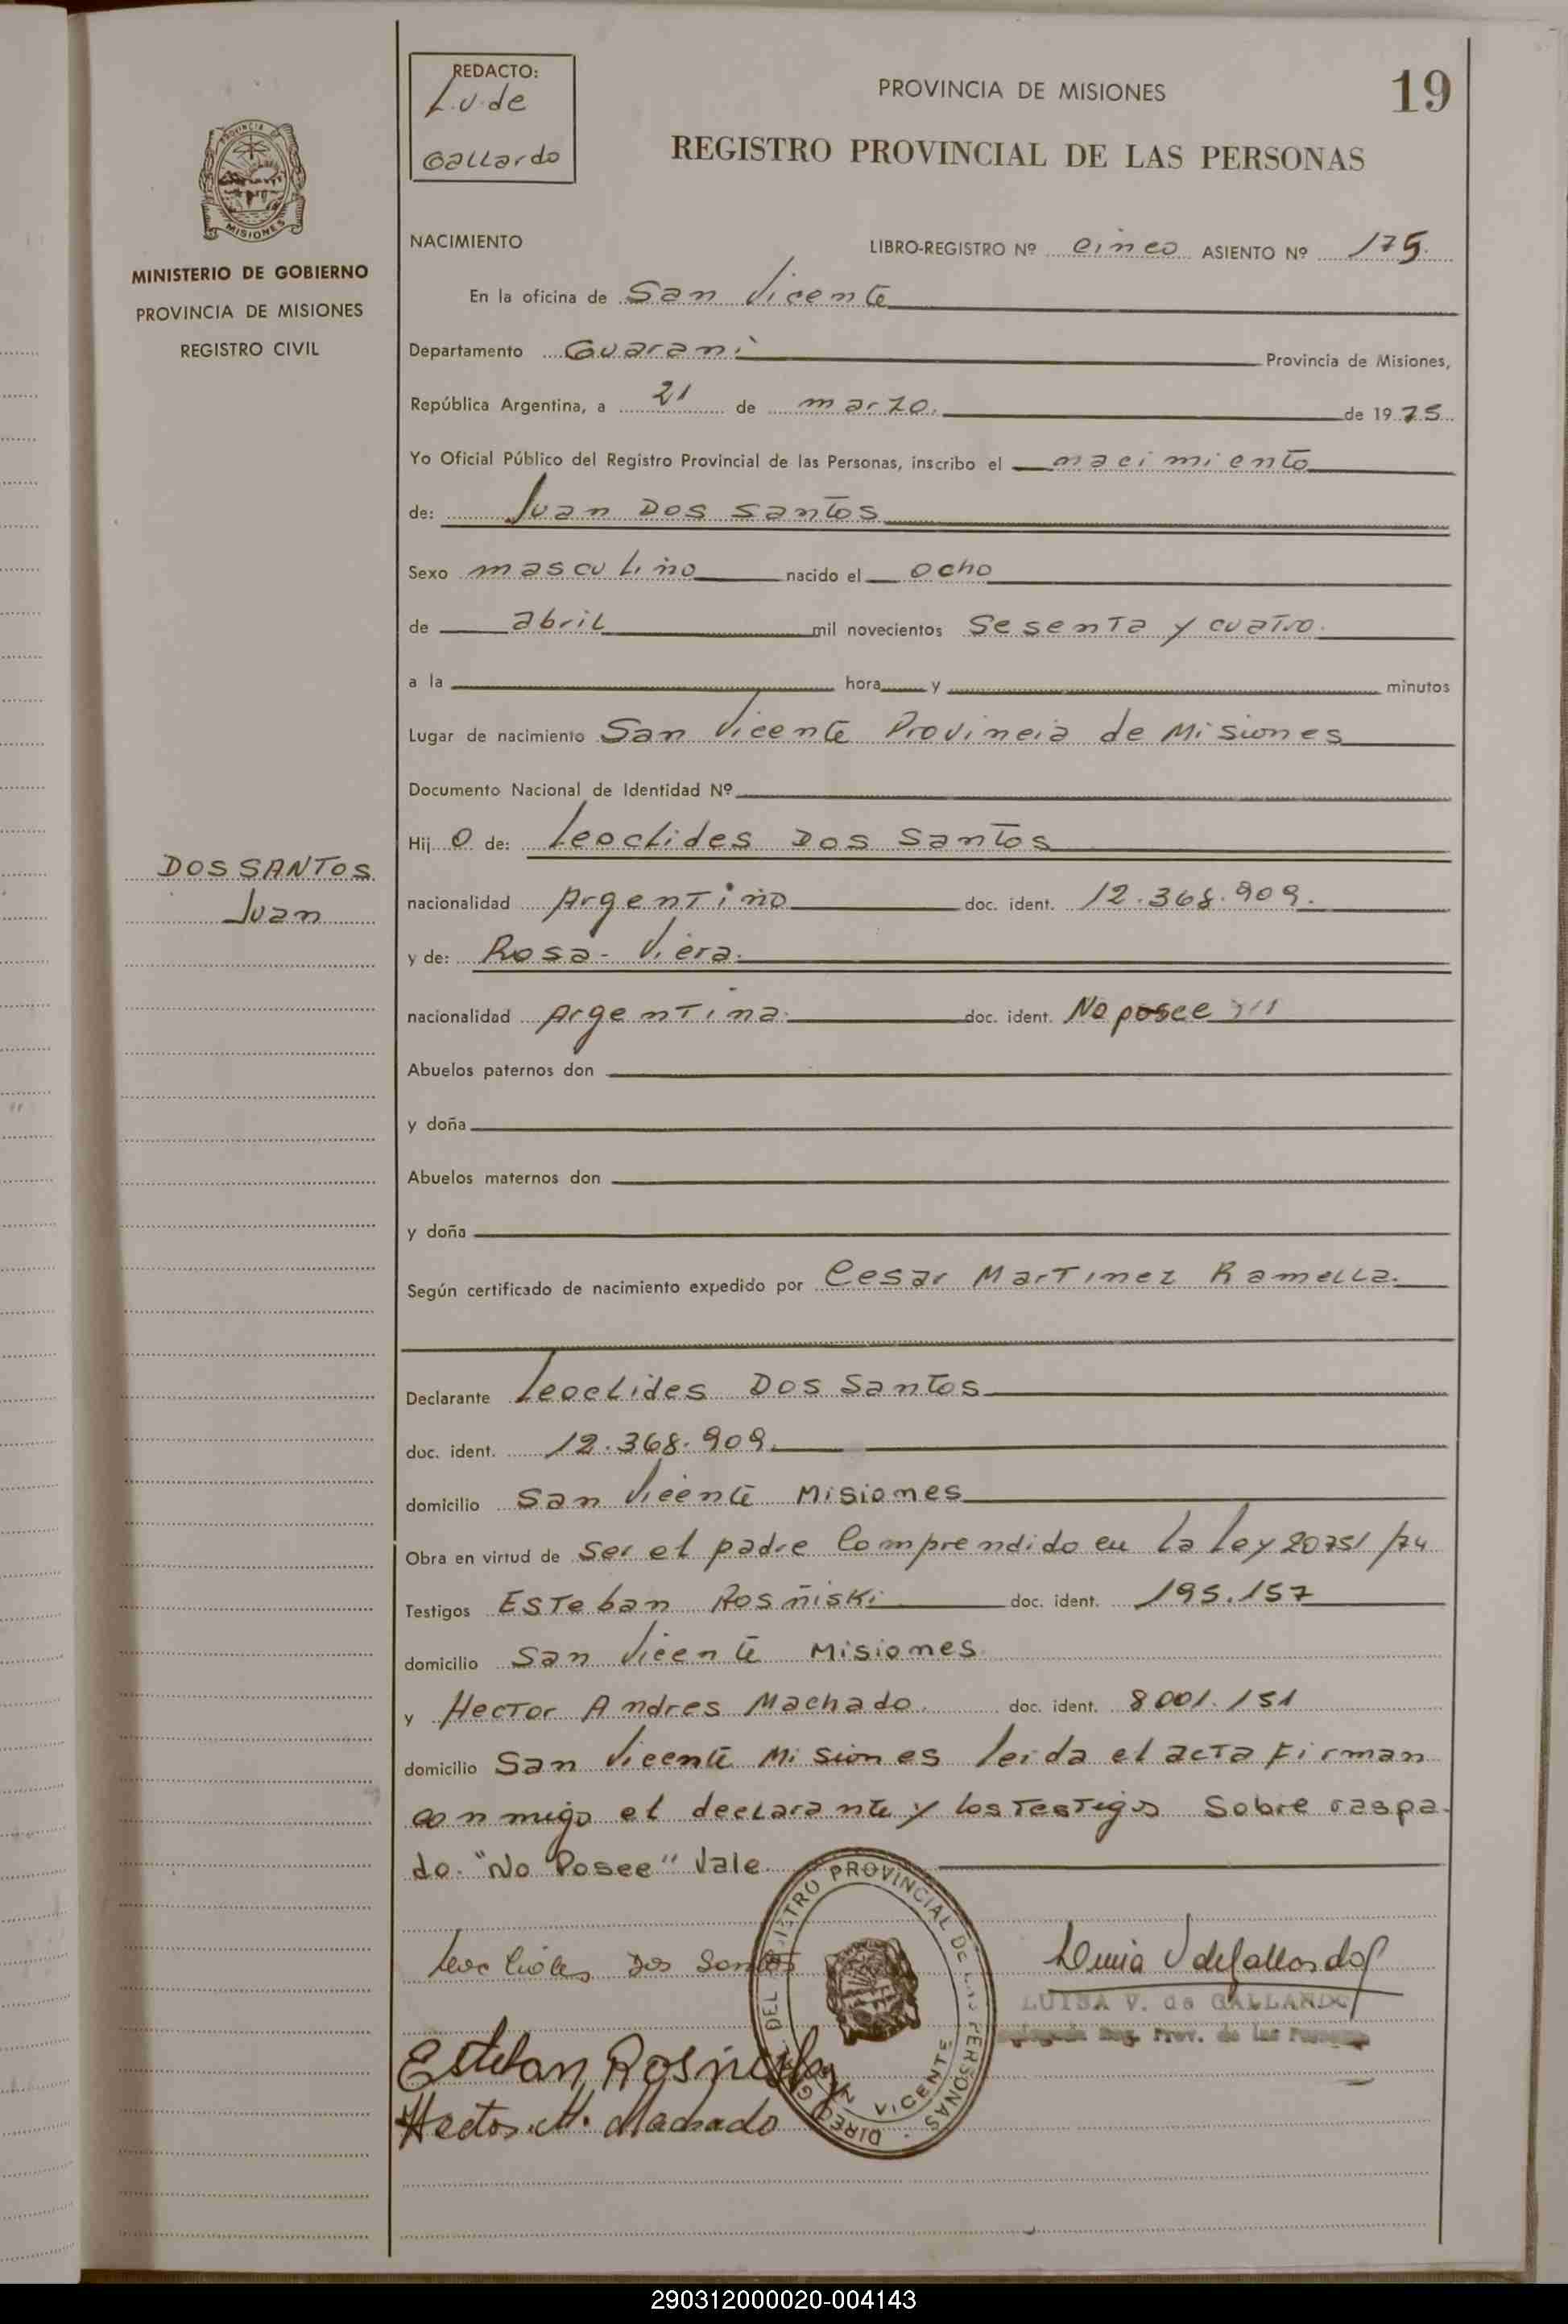 REDACTO:
L.V. de
Gallardo
PROVINCIA DE MISIONES
19
REGISTRO PROVINCIAL DE LAS PERSONAS
PROVINCIA DE
MISIONES
MINISTERIO DE GOBIERNO
PROVINCIA DE MISIONES
REGISTRO CIVIL
NACIMIENTO LIBRO-REGISTRO Nº cinco ASIENTO Nº 175.
En la oficina de San Vicente
Departamento Guaraní Provincia de Misiones,
República Argentina, a 21 de marzo. de 1975
Yo Oficial Público del Registro Provincial de las Personas, inscribo el nacimiento
de: Juan Dos Santos
Sexo masculino nacido el ocho
de abril mil novecientos Sesenta y cuatro.
a la hora y minutos
Lugar de nacimiento San Vicente Provincia de Misiones
Documento Nacional de Identidad Nº
Hijo de: Leoclides Dos Santos
DOS SANTOS
Juan
nacionalidad Argentino doc. ident. 12.368.909.
y de: Rosa - Viera.
nacionalidad Argentina. doc. ident. No posee
Abuelos paternos don
y doña
Abuelos maternos don
y doña
Según certificado de nacimiento expedido por Cesar Martinez Ramella.
Declarante Leoclides Dos Santos
doc. ident. 12.368.909.
domicilio San Vicente Misiones
Obra en virtud de Ser el padre Comprendido en la Ley 20751/74
Testigos Esteban Rosñiski doc. ident. 195.157
domicilio San Vicente Misiones.
y Hector Andres Machado. doc. ident. 8001.151
domicilio San Vicente Misiones leida el acta Firman
conmigo el declarante y los testigos Sobre raspa-
do. "No Posee" Vale.
Leoclides Dos Santos
LUISA V. de GALLARDO
Delegada Reg. Prov. de las Personas
Esteban Rosñiski
Hector A. Machado
DIRECC. GRAL. DEL REGISTRO PROVINCIAL DE LAS PERSONAS
SAN VICENTE
290312000020-004143